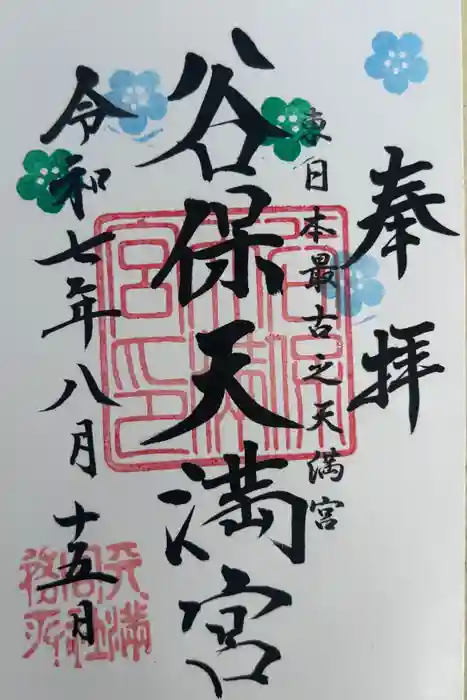 奉拝
東日本最古之天満宮
谷保天満宮
令和七年八月十五日
谷保天満宮印
天満宮社務所